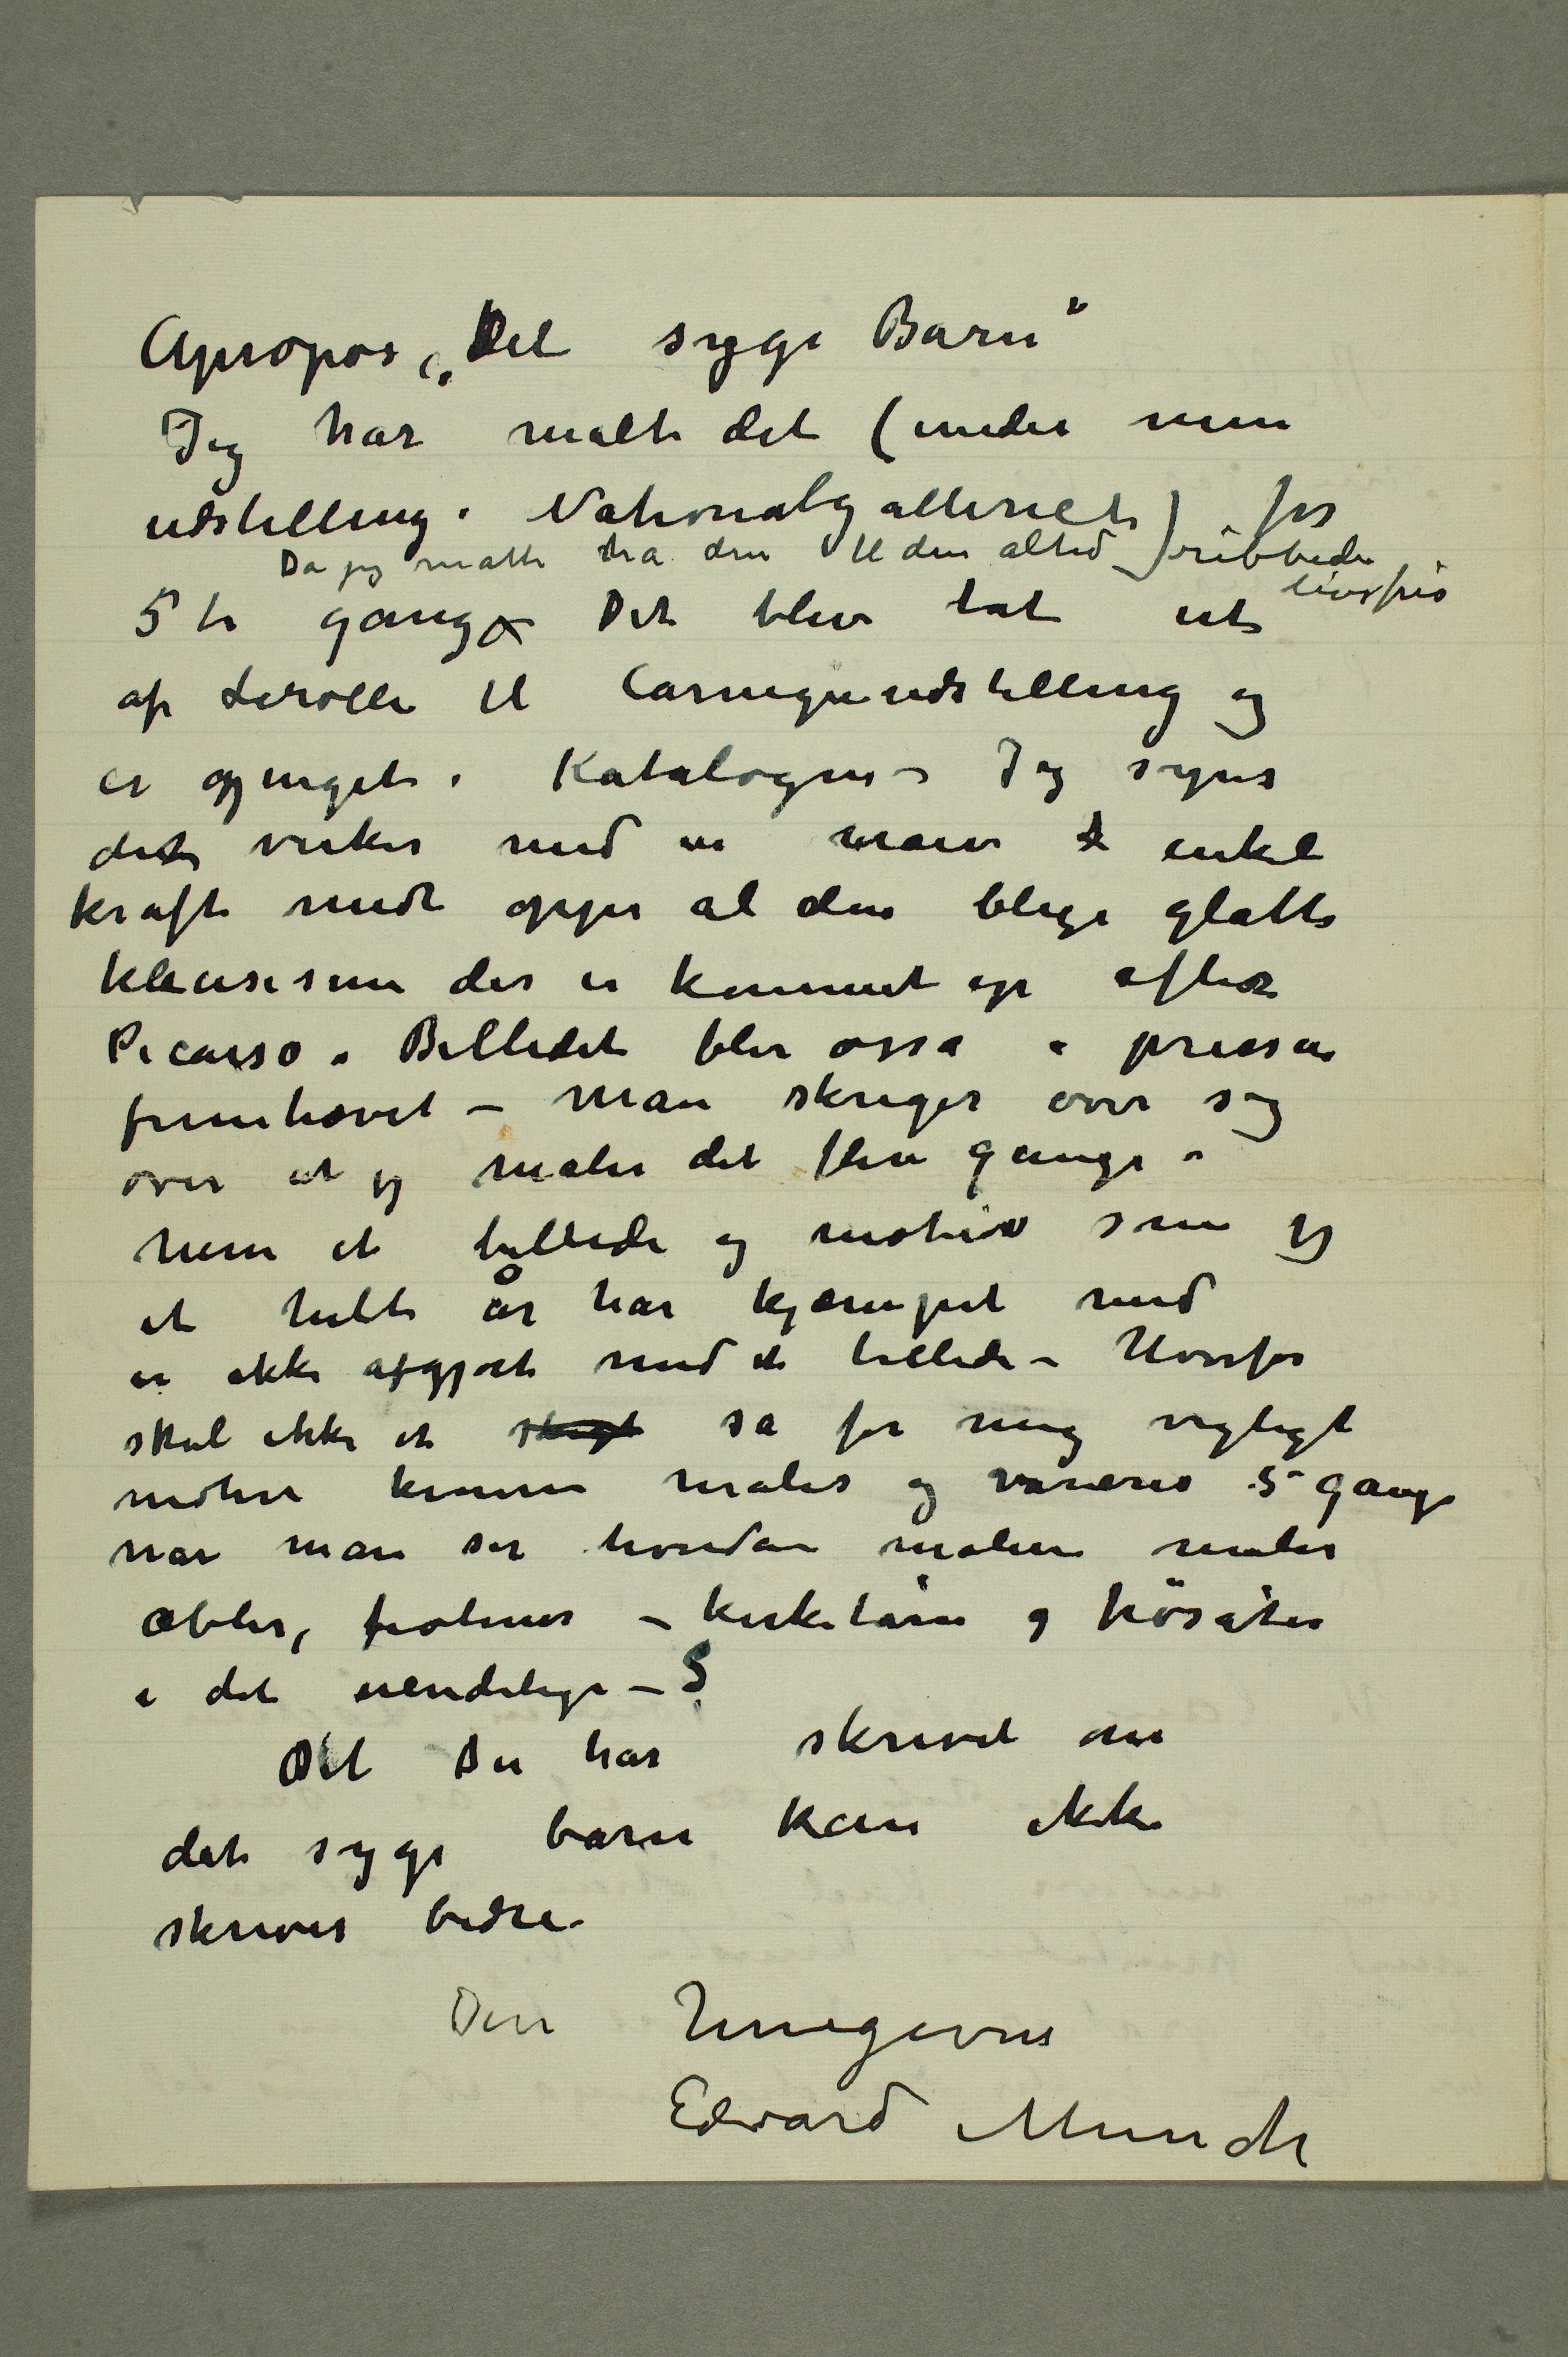 Apropos „Det syge Barn“
Jeg har malt det (under min
udstilling i Nationalgalleriet) for
Da jeg måtte ha den til den altid ribbede
livsfris
5te gang Det blev tat ut
af Lerolle til Carnegieudstilling og
er gjenget i Katalogen – Jeg synes
det virker med en naiv enkel
kraft midt oppe al den blege glatte
klasisisme der er kommet op efter
Picasso. Billedet blir også i pressen
fremhævet – Man skriger over sig
over at jeg maler det flere gange –
Men et billede og motiv som jeg
et helt år har kjæmpet med
er ikke afgjort med et billede – Hvorfor
skal ikke et så for mig vigtigt
motiv kunne males og varieres 5 gange
når man ser hvordan malere maler
æbler, fioliner – kirketårn og høsåter
i det uendelige –
Det Du har skrevet om
det syge barn kan ikke
skrives bedre.
Din hengivne
Edvard Munch